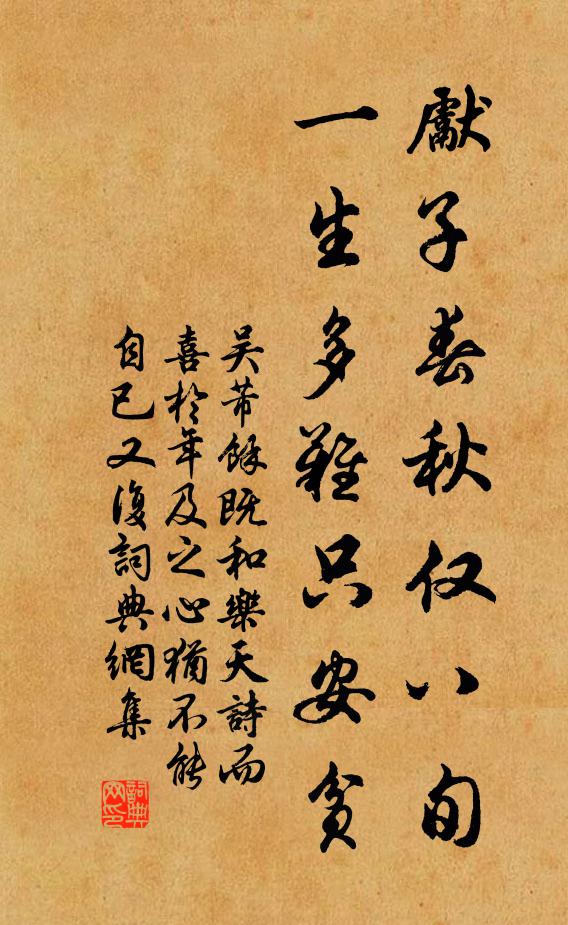 獻子春秋仅八旬
一生多難只安貧
吴芾餘既和樂天詩而
喜於年及之心猶不能
自已又復詞典網集
詞典
网印